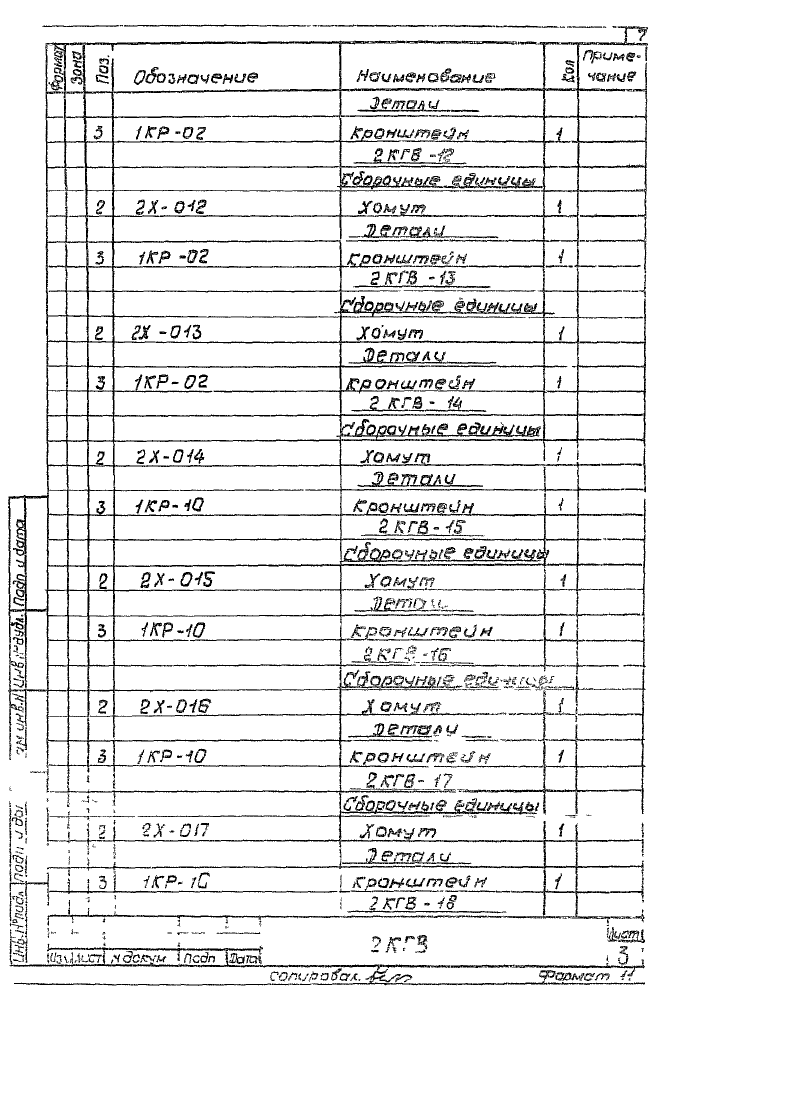 7
Формат Зона Поз. Обозначение Наименование Кол Приме-
чание
Детали
3 1КР-02 Кронштейн 1
2КГВ-12
Сборочные единицы
2 2Х-012 Хомут 1
Детали
3 1КР-02 Кронштейн 1
2КГВ-13
Сборочные единицы
2 2Х-013 Хомут 1
Детали
3 1КР-02 Кронштейн 1
2КГВ-14
Сборочные единицы
2 2Х-014 Хомут 1
Детали
3 1КР-10 Кронштейн 1
2КГВ-15
Сборочные единицы
2 2Х-015 Хомут 1
Детали
3 1КР-10 Кронштейн 1
2КГВ-16
Сборочные единицы
2 2Х-016 Хомут 1
Детали
3 1КР-10 Кронштейн 1
2КГВ-17
Сборочные единицы
2 2Х-017 Хомут 1
Детали
3 1КР-10 Кронштейн 1
2КГВ-18
Инв.№подл. Подп и дата Взам инв.№ Инв.№дубл. Подп и дата
Изм Лист № докум Подп Дата
2КГВ
Лист
3
Копировал. Формат 11